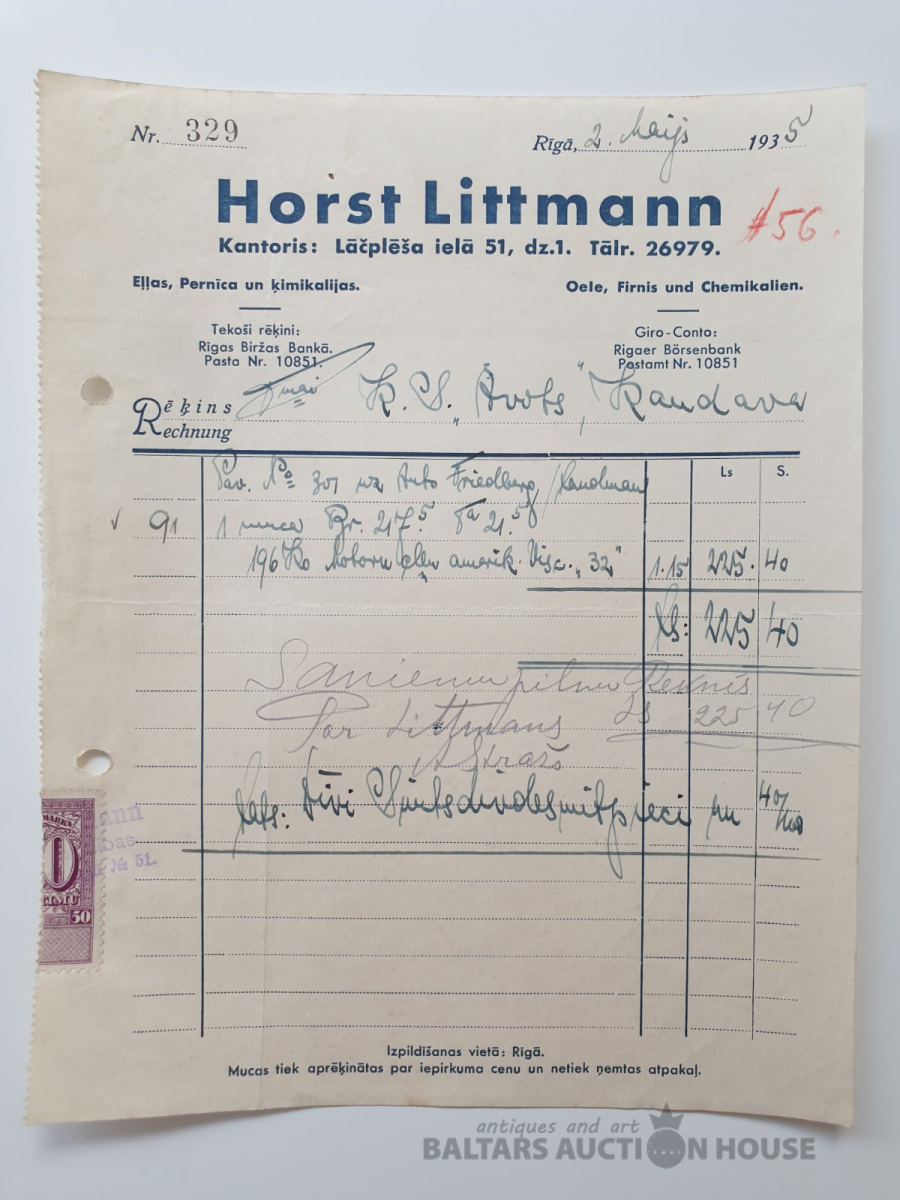 Nr. 329
Rīgā, 2. Maijs 1935
Horst Littmann
#56.
Kantoris: Lāčplēša ielā 51, dz.1. Tālr. 26979.
Eļļas, Pernīca un ķimikalijas.
Oele, Firnis und Chemikalien.
Tekoši rēķini:
Rīgas Biržas Bankā.
Pasta Nr. 10851.
Giro-Conto:
Rigaer Börsenbank
Postamt Nr. 10851
K. S. „Avots", Kandava
Rēķins
Rechnung
Ls S.
Pav. No 301 uz Auto Friedberg/Landmann
91 1 muca Br. 217.5 Ta 21.50
196 Ko Motoru eļļu amerik. Visc. „32" 1.15 225. 40
Ls: 225 40
Saņemu pilnu Reknis
Par Littmans Ls 225 40
A Straß
Lats: Divi Simtsdivdesmitpieci un 40/100
MARKA
50
№ 51.
Izpildīšanas vietā: Rīgā.
Mucas tiek aprēķinātas par iepirkuma cenu un netiek ņemtas atpakaļ.
antiques and art
BALTARS AUCTION HOUSE